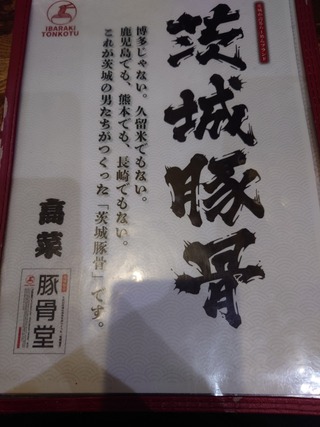 IBARAKI
TONKOTU
茨城豚骨
博多じゃない。久留米でもない。
鹿児島でも、熊本でも、長崎でもない。
これが茨城の男たちがつくった「茨城豚骨」です。
高菜
豚骨堂